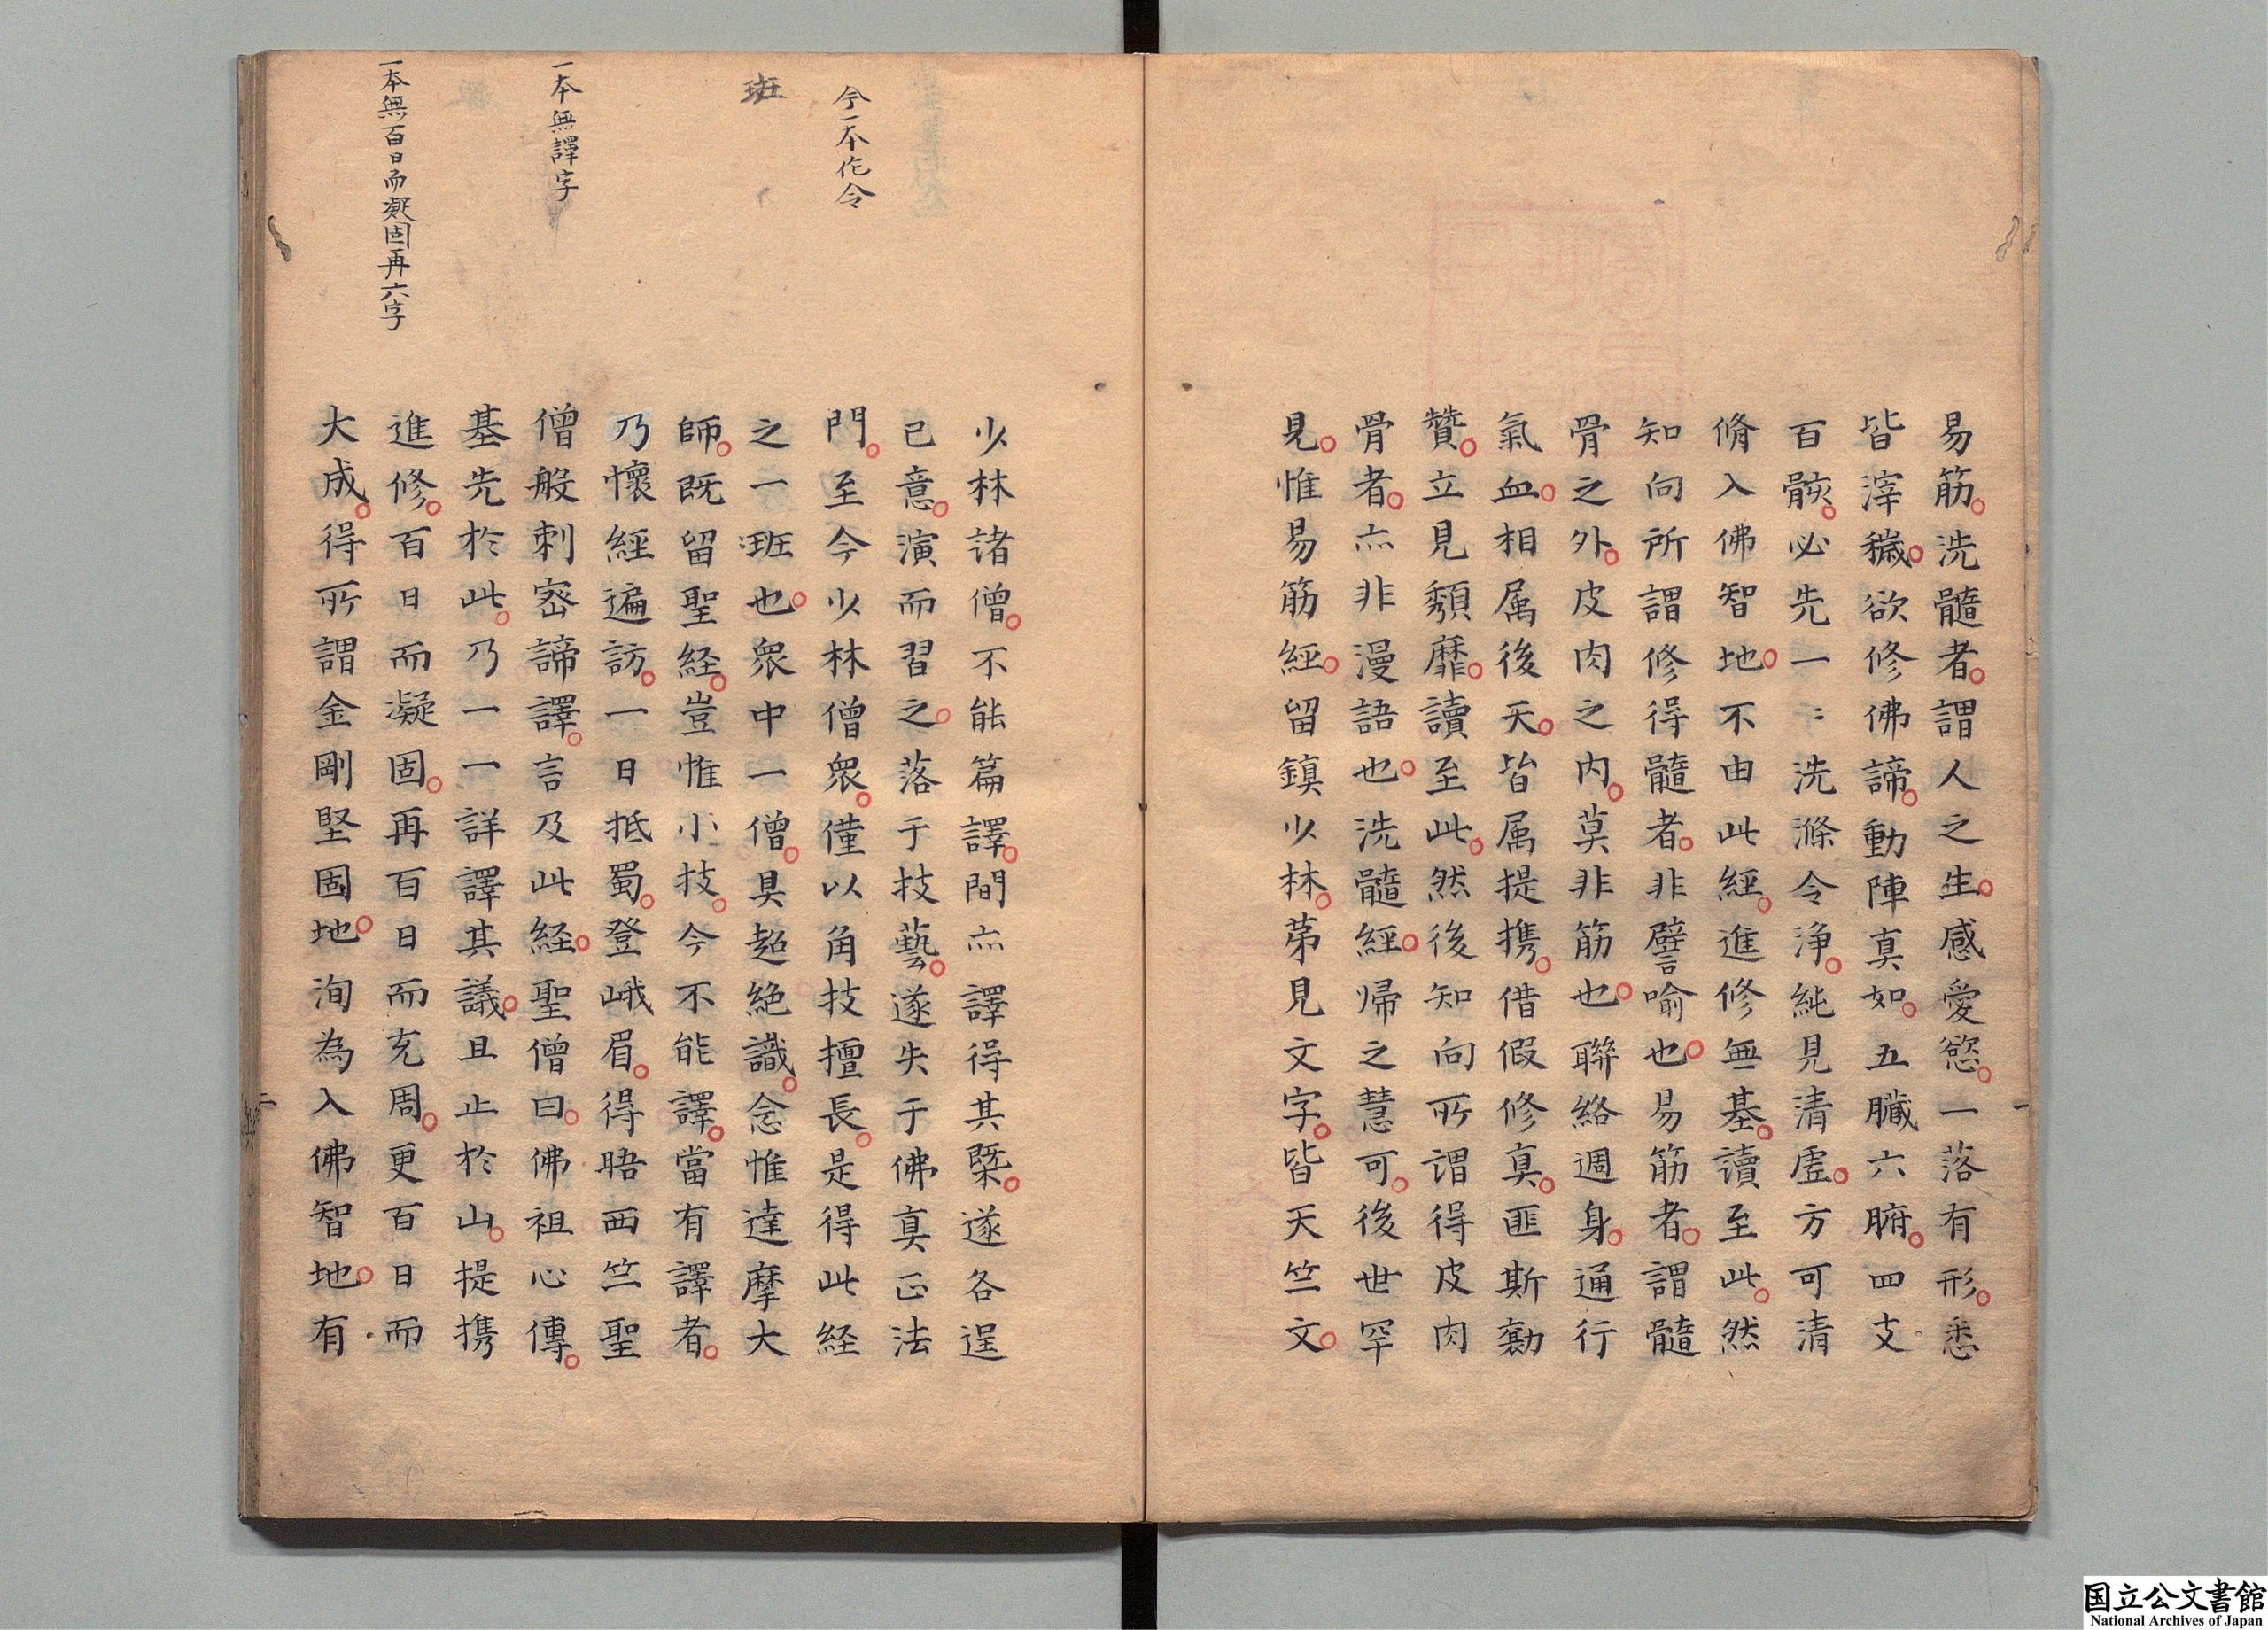 易筋。洗髓者。謂人之生。感愛慾。一落有形。悉
皆滓穢。欲修佛諦。動陣真如。五臟六腑。四支
百骸。必先一〻洗滌令浄。純見清虛。方可清
脩入佛智地。不由此經。進修無基。讀至此。然
知向所謂修得髓者。非譬喻也。易筋者。謂髓
骨之外。皮肉之内。莫非筋也。聯絡週身。通行
氣血。相属後天。皆属提携。借假修真。匪斯勷
贊。立見頽靡。讀至此。然後知向所謂得皮肉
骨者。亦非漫語也。洗髓經。帰之慧可。後世罕
見。惟易筋經。留鎮少林。苐見文字。皆天竺文。
少林諸僧。不能篇譯。間亦譯得其槩。遂各逞
已意。演而習之。落于技藝。遂失于佛真正法
門。至今少林僧衆。僅以角技擅長。是得此経
之一班也。衆中一僧。具超絶識。念惟達摩大
師。既留聖経。豈惟小技。今不能譯。當有譯者。
乃懷經遍訪。一日抵蜀。登峨眉。得晤西竺聖
僧般刺宻諦譯。言及此経。聖僧曰。佛祖心傳。
基先於此。乃一一詳譯其議。且止於山。提携
進修。百日而凝固。再百日而充周。更百日而
大成。得所謂金剛堅固地。洵為入佛智地。有
今一本作令
班
一本無譯字
一本無百日而凝固再六字
一
二
国立公文書館
National Archives of Japan